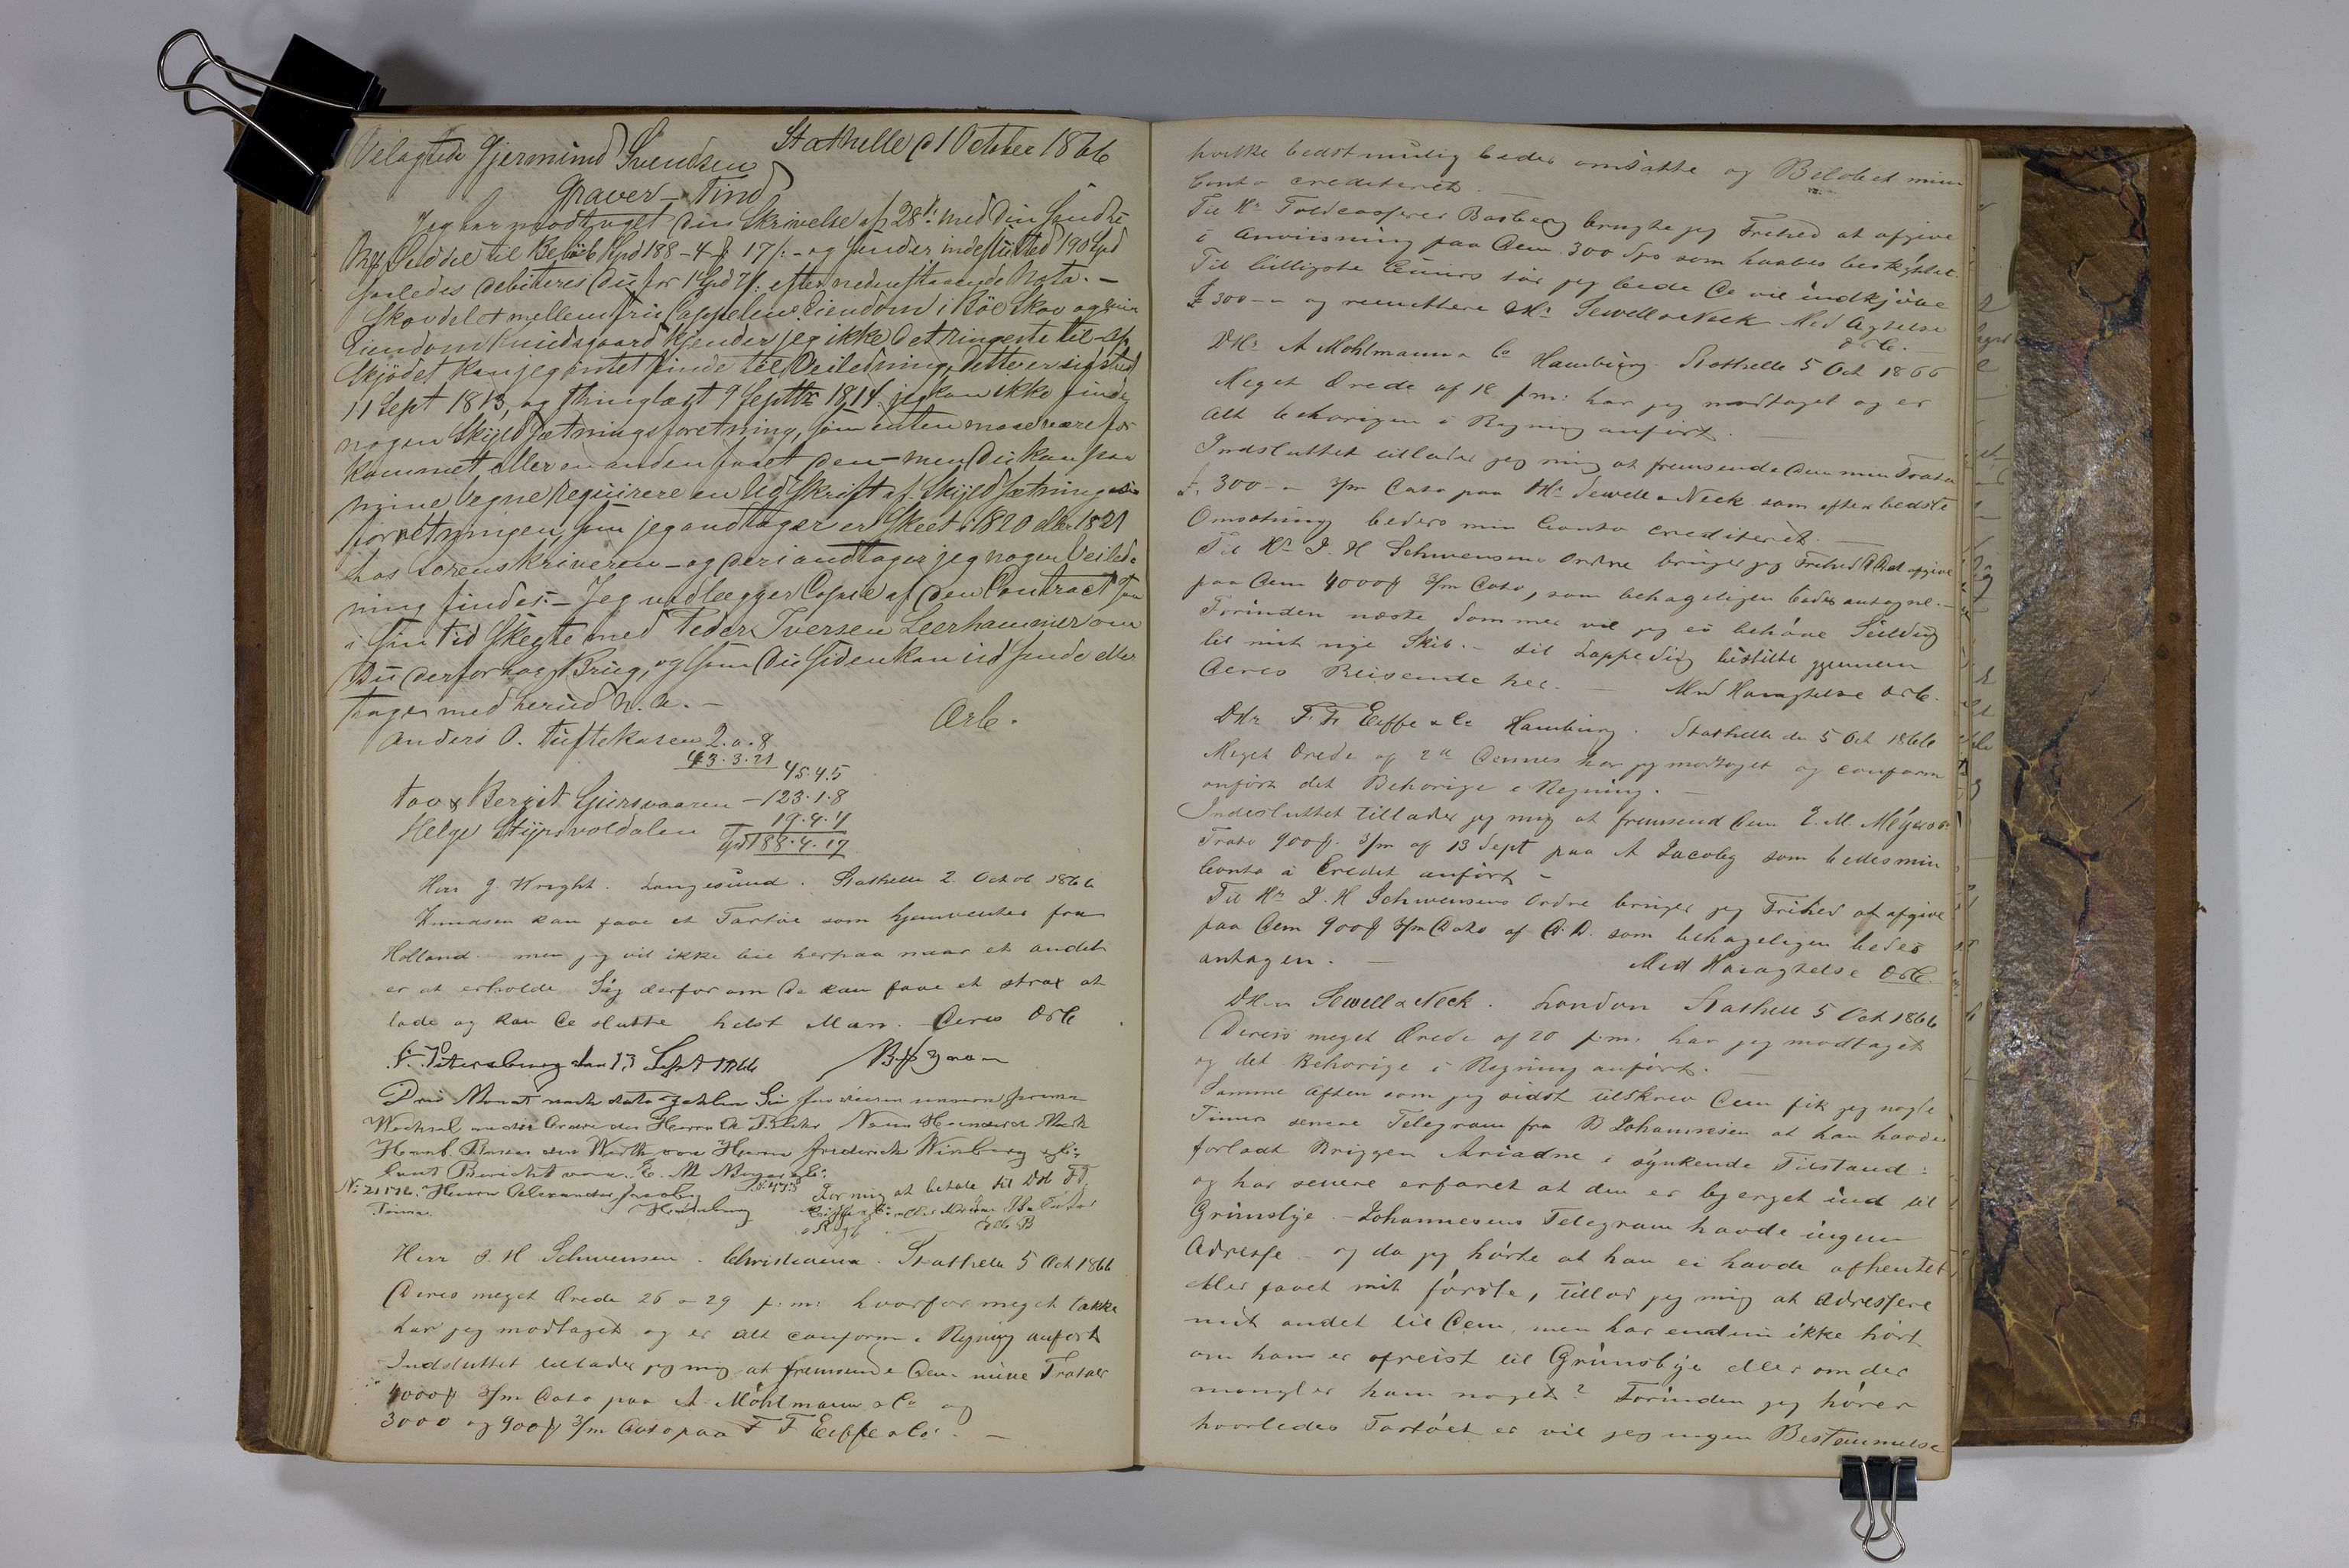 Stathelle d 1 October 1866
Velagtede Gjermund Svendsen
Graver - Tind
Jeg har modtaget Din Skrivelse af 28 med Din Sendte
til Beløb Spd 188 - 4 17 og sender indesluttet 190 Spd
saaledes debiteres Du for 1 Spd efter nedenstaaende Nota. -
Skovdelet mellem Cappelens Eiendom i Skov og min
Eiendom jeg ikke det ringeste til - Af
Skjødet kan jeg intet finde til Veiledning, dette er
11 Sept 1813, og thinglæst 9 Septbr 1814. jeg kan ikke finde
nogen Skyldsætningsforretning, som enten maae være for
kommet eller en anden faaet den - men Du kan paa
mine Vegne requirere en Udskrift af Skyldsætnings
forretningen, som jeg andtager er skeet i 1820 eller 1821
hos Sorenskriveren - og deri andtager jeg nogen Veiled-
ning findes. - Jeg vedlægger Copie af den Contract som
i sin Tid skeete med Peder Iversen Leerhammer om
Du derfor har Brug, og som Du siden kan udsende eller
tage med herud
Anders O. Tuftekasen 2.0.8 Ørb.
43.3.21 45.4.5
Bergit - 123.1.8
Helge 19.4.4
Spd 188.4.17
Herr J. Wright. Langesund. Stathelle 2. Octob 1866
Knudsen kan faae et Fartøi som hjemventes fra
Holland - men jeg vil ikke bie herpaa naar et andet
er at erholde Siig derfor om De kan faae et strax at
lade og kan De slutte helst Man. - Deres Ørb
St. Petersburg den 13 Sept 1866
Drei Monat nach dato zahlen Sie für diesen unsern prima
Wechsel an die Ordre des Herrn Neun Hundert Mark
Hamb. Banco den Werth von Herrn Frederich Winberg
laut Bericht von E. M. Meyer & Co
Herrn Alexander Jacoby For mig at betale til DHr FF.
Prima. Hamburg
Herr I. H Schwensen. Christiania. Stathelle 5 Oct 1866
Deres meget Ærede 26 & 29 p: m: hvorfor meget takke
har jeg modtaget og er alt conform i Regning anført
Indsluttet tillader jeg mig at fremsende Dem mine Tratter
4000 3/m Dato paa A Möhlmann & Co og
3000 og 900 3/m Dato paa F F Eiffe & Co. -
hvilke bedst mulig bedes omsatte og Beløbet min
Conto crediteret. -
Til Hr Toldcasserer Basberg brugte jeg Frihed at afgive
i Anviisning paa Dem 300 Spd som haabes beskyttet.
Til billigste Cours tør jeg bede De vil indkjøbe
£ 300 - - og remittere DHr Sewell & Neck Med Agtelse
Ørb. -
DHr A Möhlmann & Co Hamburg. Stathelle 5 Oct 1866
Meget Ærede af 18 p m: har jeg modtaget og er
alt behørigen i Regning anført. -
Indsluttet tillader jeg mig at fremsende Dem min Tratte
£. 300 - - 3/m Dato paa DHr Sewell & Neck som efter bedste
Omsætning bedes min Conto crediteret. -
Til Hr I. H Schwensens Ordre bruger jeg Frihed at afgive
paa Dem 4000 3/m Dato, som behageligen bedes antagne. -
Forinden næste Sommer vil jeg ei behøve
til mit nye Skib. - bestilte gjennem
Deres Reisende her. - Med Høiagtelse Ørb.
DHr F. F. Eiffe & Co Hamburg. Stathelle den 5 Oct 1866
Meget Ærede af 2 dennes har jeg modtaget og conform
anført det Behørige i Regning. -
Indesluttet tillader jeg mig at fremsend Dem E. M. Meyer & Co
Tratte 900 3/m af 13 Sept paa A Jacoby som bedes min
Conto á Credit anført -
Til Hr I. H Schwensens Ordre bruger jeg Frihed at afgive
paa Dem 900 3/m Dato af D. D. som behageligen bedes
antagen. - Med Høiagtelse Ørb.
DHrr Sewell & Neck. London Stathelle 5 Oct 1866
Deres meget Ærede af 20 p: m: har jeg modtaget
og det Behørige i Regning anført. -
Samme Aften som jeg sidst tilskrev Dem fik jeg nogle
Timer senere Telegram fra Johannesen at han havde
forladt Briggen Ariadne i synkende Tilstand:
og har senere erfaret at den er bjerget ind til
Grimsbye. - Johannesens Telegram havde ingen
Adresse - og da jeg hørte at han ei havde afhentet
eller faaet mit første, tillod jeg mig at adressere
mit andet til Dem, men har endnu ikke hørt
om han er afreist til Grimsbye eller om der
mangler ham noget? Forinden jeg hører
hvorledes Fartøiet er vil jeg ingen Bestemmelse